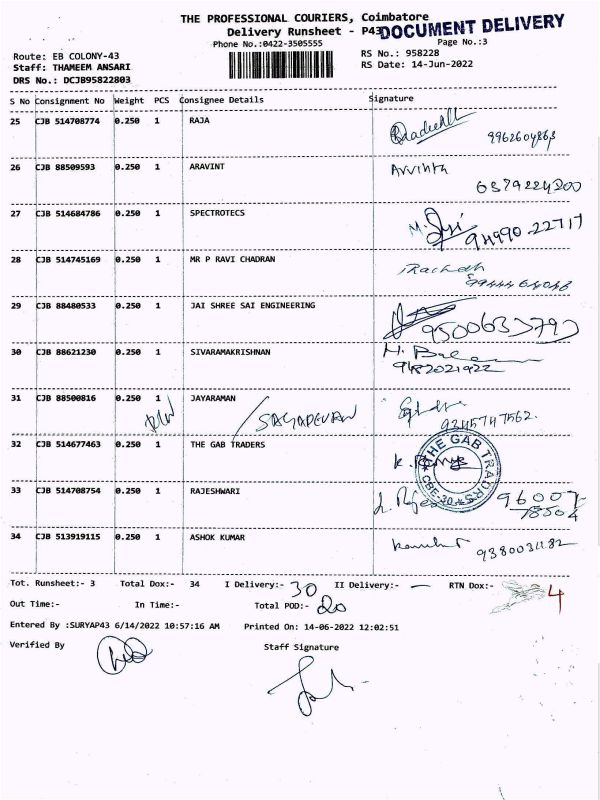 THE PROFESSIONAL COURIERS, Coimbatore
Delivery Runsheet - P43
DOCUMENT DELIVERY
Phone No.:0422-3505555
Page No.:3
Route: EB COLONY-43
RS No.: 958228
Staff: THAMEEM ANSARI
RS Date: 14-Jun-2022
DRS No.: DCJB95822803
S No Consignment No Weight PCS Consignee Details Signature
25 CJB 514708774 0.250 1 RAJA
26 CJB 88509593 0.250 1 ARAVINT
27 CJB 514684786 0.250 1 SPECTROTECS
28 CJB 514745169 0.250 1 MR P RAVI CHADRAN
29 CJB 88480533 0.250 1 JAI SHREE SAI ENGINEERING
9500633793
30 CJB 88621230 0.250 1 SIVARAMAKRISHNAN
9482021922
31 CJB 88500816 0.250 1 JAYARAMAN
/SAGADEVAN
9345747562.
32 CJB 514677463 0.250 1 THE GAB TRADERS
THE GAB TRADRS
CBE-30
33 CJB 514708754 0.250 1 RAJESHWARI
96007-
78504
34 CJB 513919115 0.250 1 ASHOK KUMAR
9380031182
Tot. Runsheet:- 3 Total Dox:- 34 I Delivery:- 30 II Delivery:- — RTN Dox:- 4
Out Time:- In Time:- Total POD:- 20
Entered By :SURYAP43 6/14/2022 10:57:16 AM Printed On: 14-06-2022 12:02:51
Verified By Staff Signature